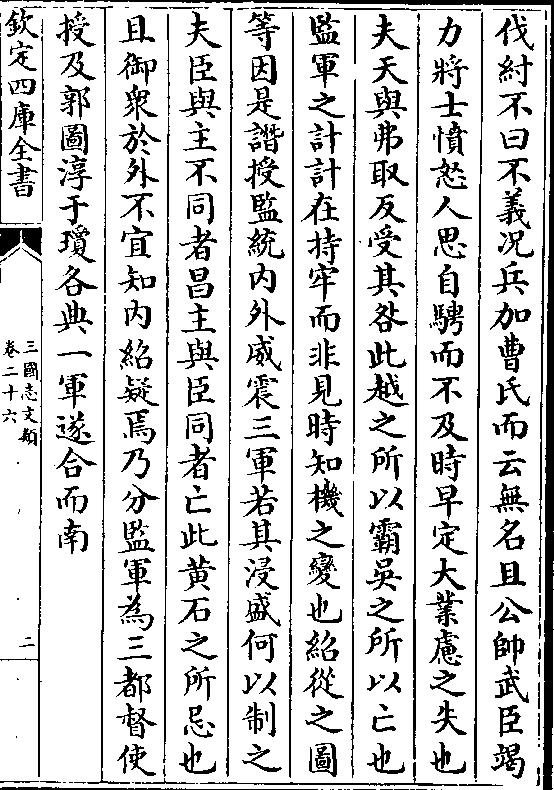 伐紂不曰不義况兵加曹氏而云無名且公帥武臣竭
力將士憤怒人思自騁而不及時早定大業慮之失也
夫天與弗取反受其咎此越之所以霸吳之所以亡也
監軍之計計在持牢而非見時知機之變也紹從之圖
等因是譖授監統内外威震三軍若其浸盛何以制之
夫臣與主不同者昌主與臣同者亡此黄石之所忌也
且御衆於外不宜知内紹疑焉乃分監軍為三都督使
授及郭圖淳于瓊各典一軍遂合而南
欽定四庫全書
三國志文類
卷二十六
二